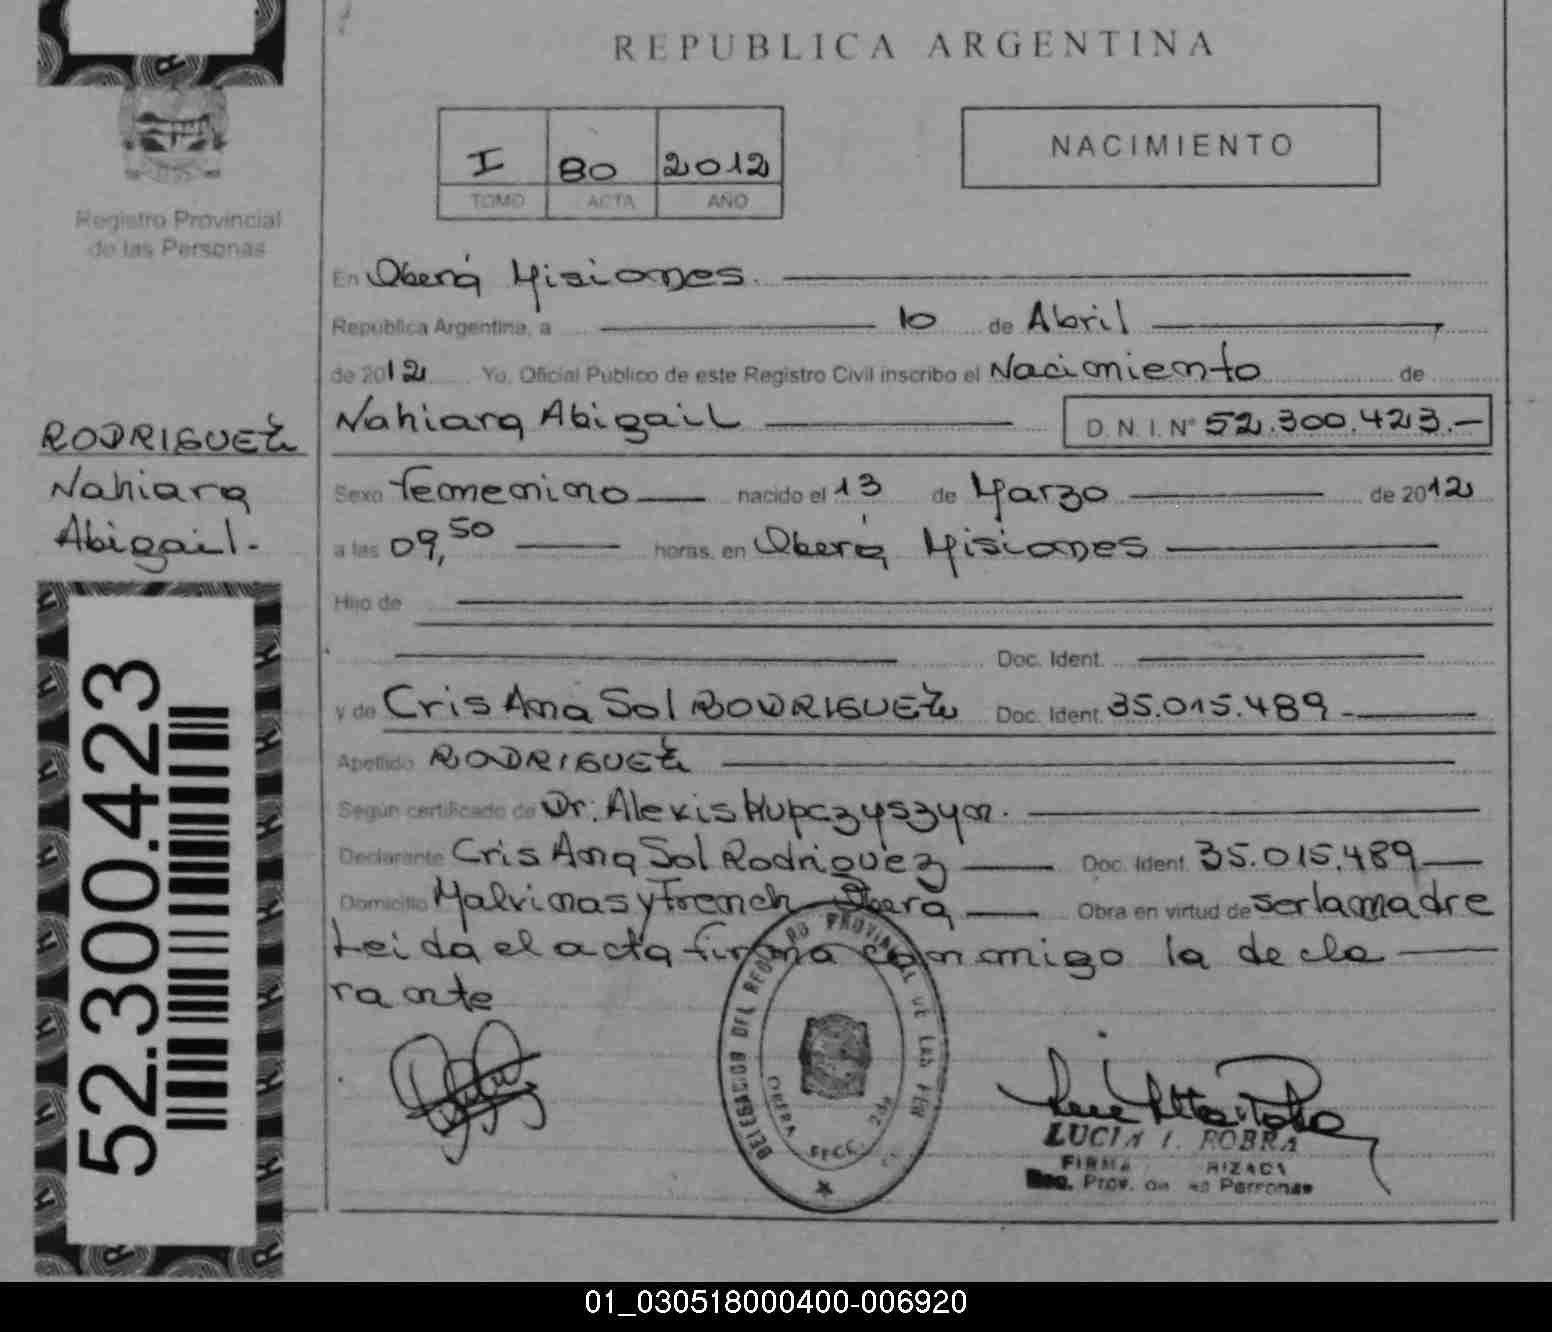 REPUBLICA ARGENTINA
I 80 2012
TOMO ACTA AÑO
NACIMIENTO
Registro Provincial
de las Personas
En Oberá Misiones.
República Argentina, a 10 de Abril
de 2012 Yo, Oficial Público de este Registro Civil inscribo el Nacimiento de
Nahiara Abigail D. N. I. N° 52.300.423.-
RODRIGUEZ
Nahiara
Abigail.-
Sexo femenino nacido el 13 de Marzo de 2012
a las 09,50 horas, en Oberá Misiones
Hijo de
Doc. Ident.
y de Cris Ana Sol RODRIGUEZ Doc. Ident. 35.015.489.-
Apellido RODRIGUEZ
Según certificado de Dr. Alexis Hupczyszyn.
Declarante Cris Ana Sol Rodriguez Doc. Ident. 35.015.489
Domicilio Malvinas y French Oberá Obra en virtud de ser la madre
Leida el acta firma conmigo la decla
rante
52.300.423
DELEGACION DEL REGISTRO PROVINCIAL DE LAS PER
OBERA
SECC. 2da
LUCIA I. ROBRA
FIRMA RIZADA
Reg. Prov. de las Personas
01_030518000400-006920